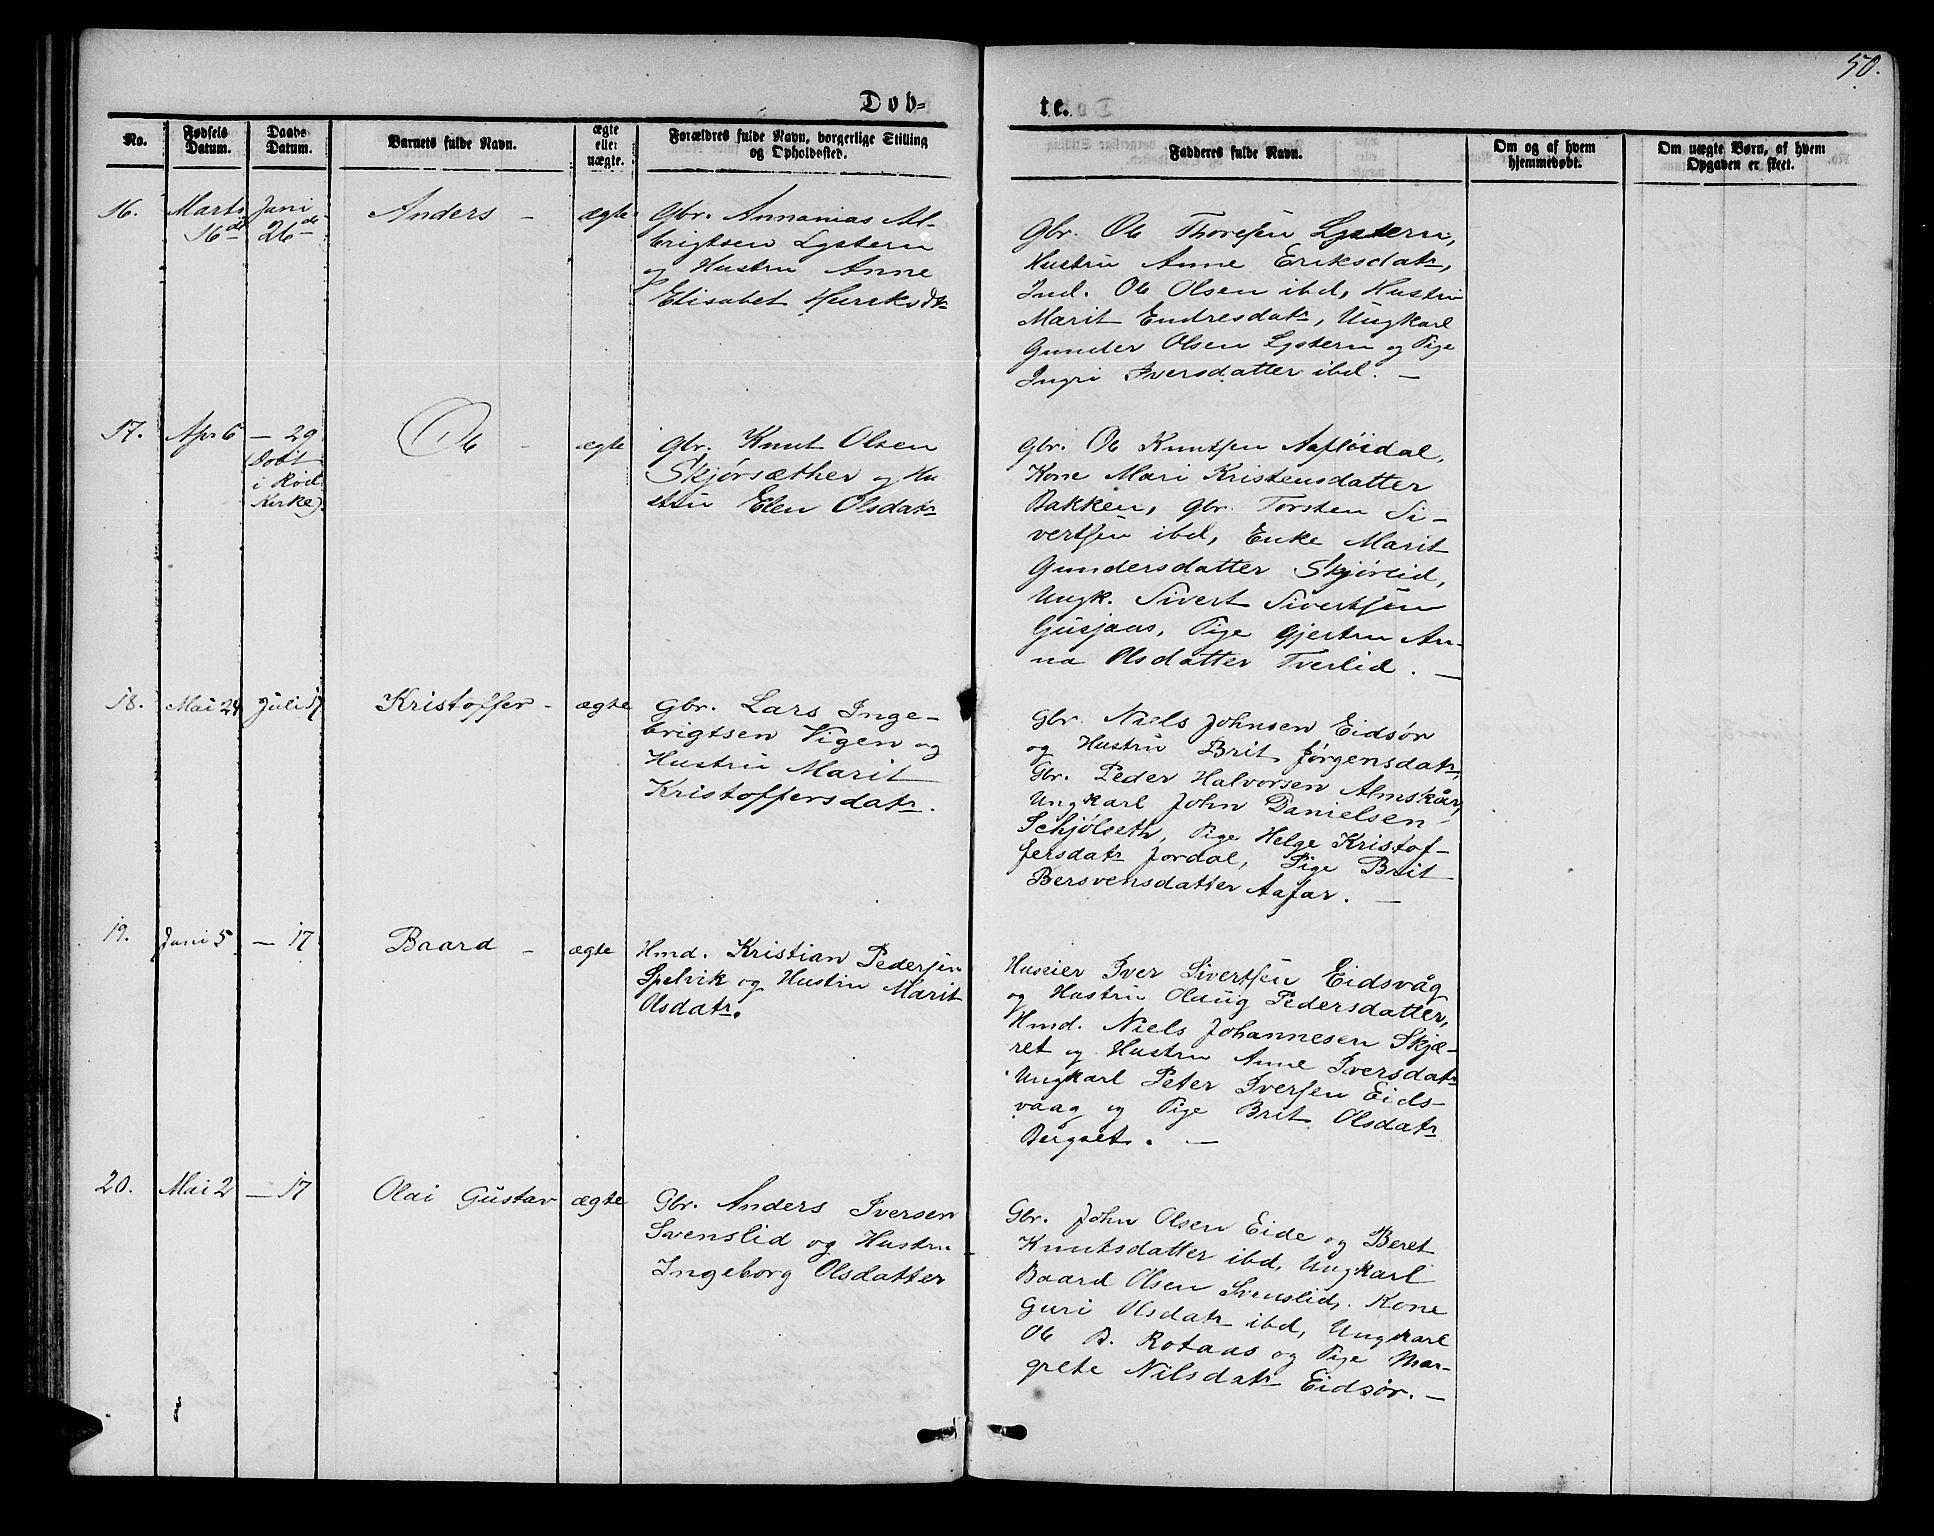 50.
Døb-
te.
No.
Fødsels Datum.
Daabs Datum.
Barnets fulde Navn.
ægte eller uægte.
Forældres fulde Navn, borgerlige Stilling og Opholdssted.
Fadderes fulde Navn.
Om og af hvem hjemmedøbt.
Om uægte Børn, af hvem Opgaven er skeet.
16.
Marts
16de
Juni
26de
Anders –
ægte
Gbr. Annanias Al-
brigtsen Lystern
og Hustru Anne
Elisabet
Gbr. Ole Thoresen Lystern,
Hustru Anne Eriksdatr,
Ind. Ole Olsen ibd, Hustru
Marit Endresdatr, Ungkarl
Gunder Olsen Lystern og Pige
Ingri Iversdatter ibd. –
17.
Apr 6
– 29
(Døbt
i Rød
Kirke).
Ole –
ægte
Gbr. Knut Olsen
Skjørsæther og Hu
stru Elen Olsdatr
Gbr. Ole Knutsen Aafløidal,
Kone Mari Kristensdatter
Bakken, Gbr. Torsten Si-
vertsen ibd, Enke Marit
Gundersdatter Skjørlid,
Ungk. Sivert Sivertsen
Gusjaas, Pige Gjertru An-
na Olsdatter Tverlid. –
18.
Mai 24
Juli 17
Kristoffer –
ægte
Gbr. Lars Inge-
brigtsen Vigen og
Hustru Marit
Kristoffersdatr.
Gbr. Niels Johnsen Eidsør
og Hustru Brit Jørgensdatr,
Gbr. Peder Halvorsen Almskår,
Ungkarl John Danielsen
Schjølseth, Pige Helge Kristof-
fersdatr Jordal, Pige Brit
Bersvensdatter Aafar. –
19.
Juni 5
– 17
Baard –
ægte
Hmd. Kristian Pedersen
Spelvik og Hustru Marit
Olsdatr.
Huseier Iver Sivertsen Eidsvåg
og Hustru Olaug Pedersdatter,
Hmd. Niels Johannesen Skjæ-
ret og Hustru Anne Iversdatr
Ungkarl Peter Iversen Eids-
vaag og Pige Brit Olsdatr
Bergset. –
20.
Mai 2
– 17
Olai Gustav
ægte
Gbr. Anders Iversen
Svenslid og Hustru
Ingeborg Olsdatter
Gbr. John Olsen Eide og Beret
Knutsdatter ibd, Ungkarl
Baard Olsen Svenslid, Kone
Guri Olsdatr ibd, Ungkarl
Ole B. Rotaas og Pige Mar-
grete Nilsdatr Eidsør. –